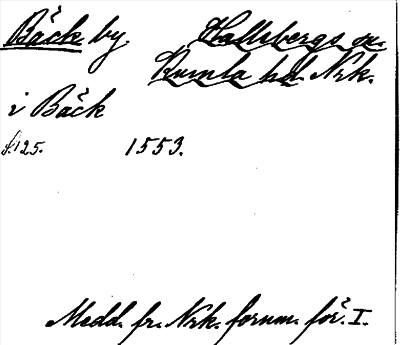 Bäck by Hallsbergs sn.
Kumla hd. Nrk.
i Bäck
s. 125. 1553.
Medd. fr. Nrk. fornm. för. I.